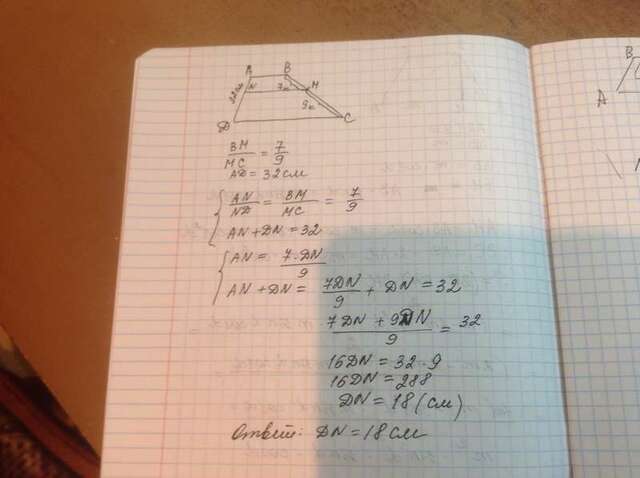 A B
32см N 7x M
9x
D C
BM/MC = 7/9
AD = 32 см
AN/ND = BM/MC = 7/9
AN + DN = 32
AN = 7·DN/9
AN + DN = 7DN/9 + DN = 32
7DN + 9DN/9 = 32
16DN = 32·9
16DN = 288
DN = 18 (см)
Ответ: DN = 18 см
B
A